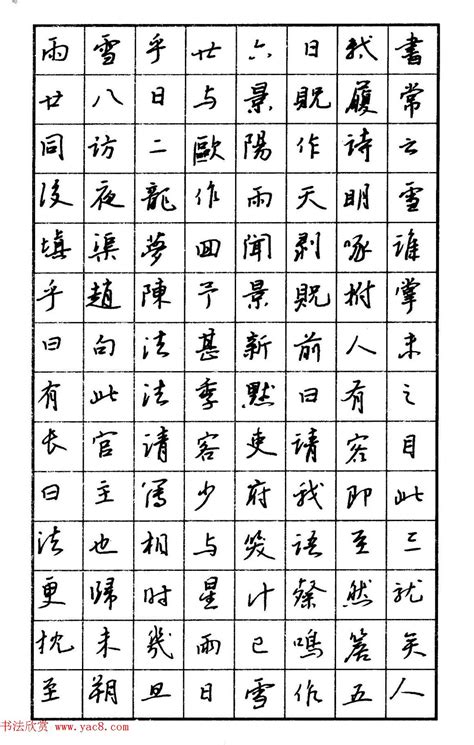 雨雪乎廿六日我書
廿八日与景貺履常
同访二歐陽作詩云
後夜龍作雨天明雪
填渠夢回聞剥啄誰
乎趙陳予景貺拊掌
曰句法甚新前人未
有此法季默曰有之
长官請客吏請客目
曰主簿少府我即此
法也相与笑語至三
更歸时星斗燦然就
枕未幾雨已鳴簷矣
至朔旦日雪作五人
书法欣赏 www.yac8.com